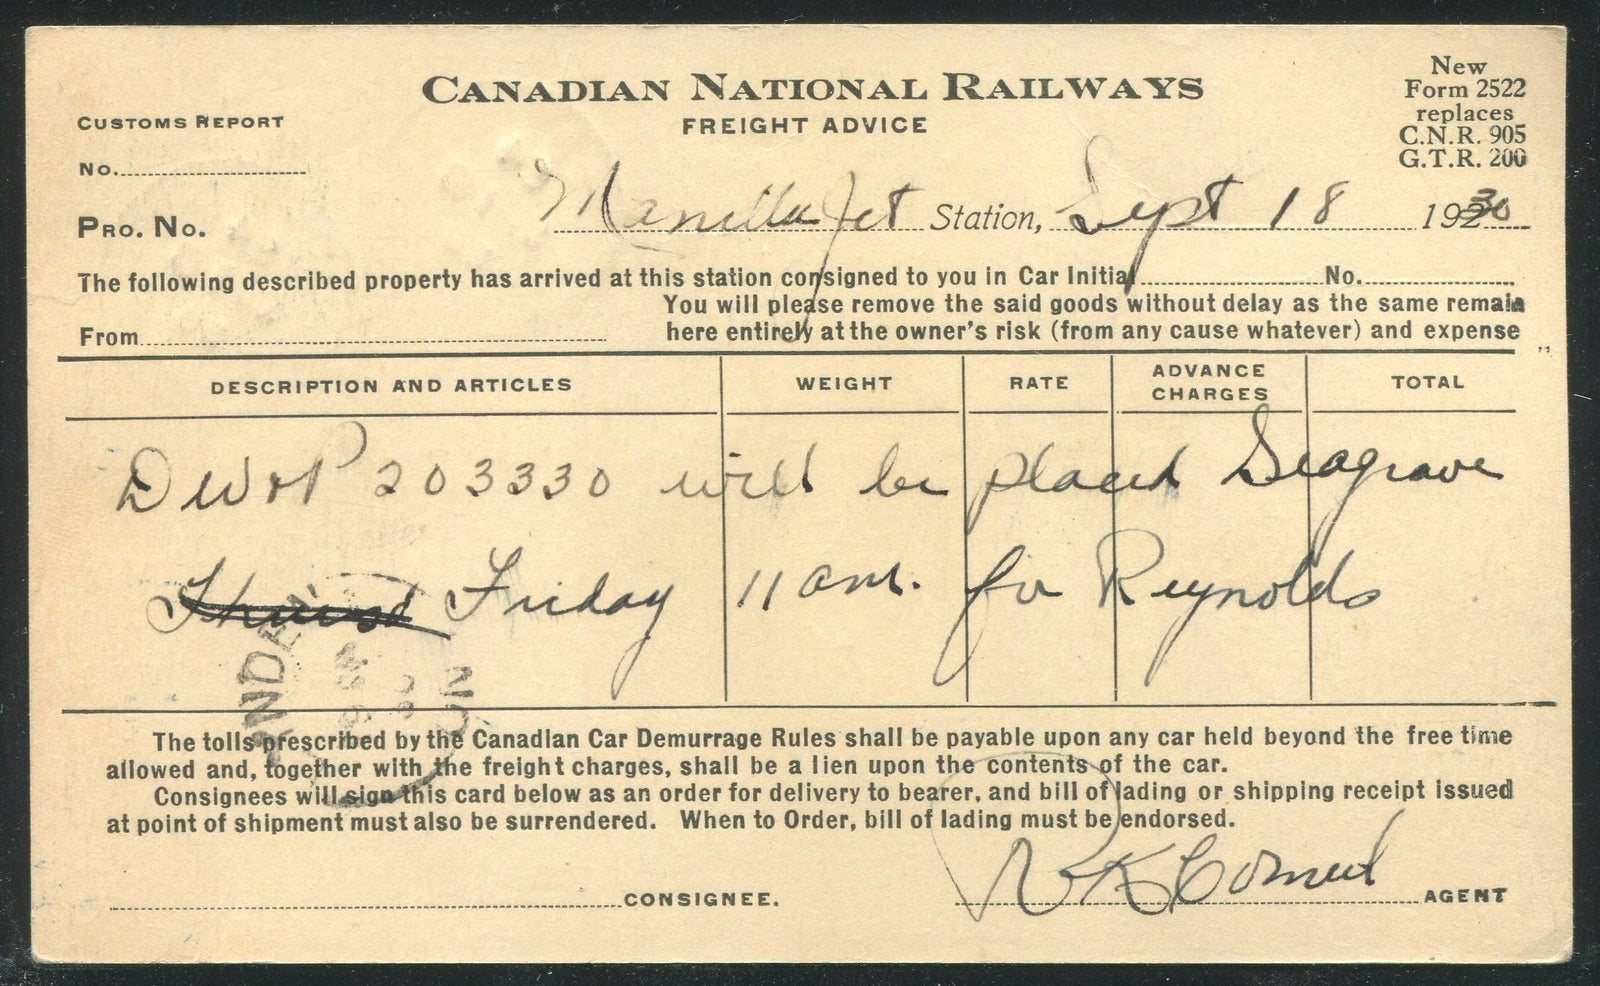 CANADIAN NATIONAL RAILWAYS
FREIGHT ADVICE
New
Form 2522
replaces
C.N.R. 905
G.T.R. 200
CUSTOMS REPORT
No.
PRO. No.
Manilla Jct Station, Sept 18 1930
The following described property has arrived at this station consigned to you in Car Initial No.
You will please remove the said goods without delay as the same remain
From here entirely at the owner's risk (from any cause whatever) and expense
DESCRIPTION AND ARTICLES WEIGHT RATE ADVANCE CHARGES TOTAL
DW&P 203330 will be placed Seagrave
Friday 11 am. for Reynolds
The tolls prescribed by the Canadian Car Demurrage Rules shall be payable upon any car held beyond the free time
allowed and, together with the freight charges, shall be a lien upon the contents of the car.
Consignees will sign this card below as an order for delivery to bearer, and bill of lading or shipping receipt issued
at point of shipment must also be surrendered. When to Order, bill of lading must be endorsed.
CONSIGNEE.
AGENT